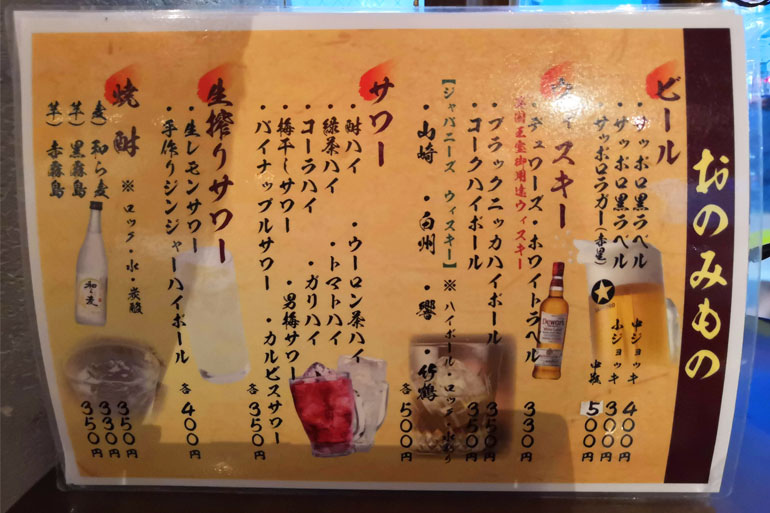 おのみもの
ビール
・サッポロ黒ラベル 中ジョッキ 400円
・サッポロ黒ラベル 小ジョッキ 300円
・サッポロラガー(赤星) 中瓶 500円
スキー
英国王室御用達ウィスキー
・デュワーズ・ホワイトラベル 330円
・ブラックニッカハイボール 350円
・コークハイボール 350円
【ジャパニーズ ウィスキー】※ハイボール・ロック・水割り
・山崎 ・白州 ・響 ・竹鶴 各500円
サワー
・酎ハイ ・ウーロン茶ハイ
・緑茶ハイ ・トマトハイ
・コーラハイ ・ガリハイ
・梅干しサワー ・男梅サワー
・パイナップルサワー ・カルピスサワー 各350円
生搾りサワー
・生レモンサワー
・手作りジンジャーハイボール 各400円
焼酎 ※ロック・水・炭酸
麦)和ら麦 350円
芋)黒霧島 330円
芋)赤霧島 350円
和ら麦
DEWAR'S